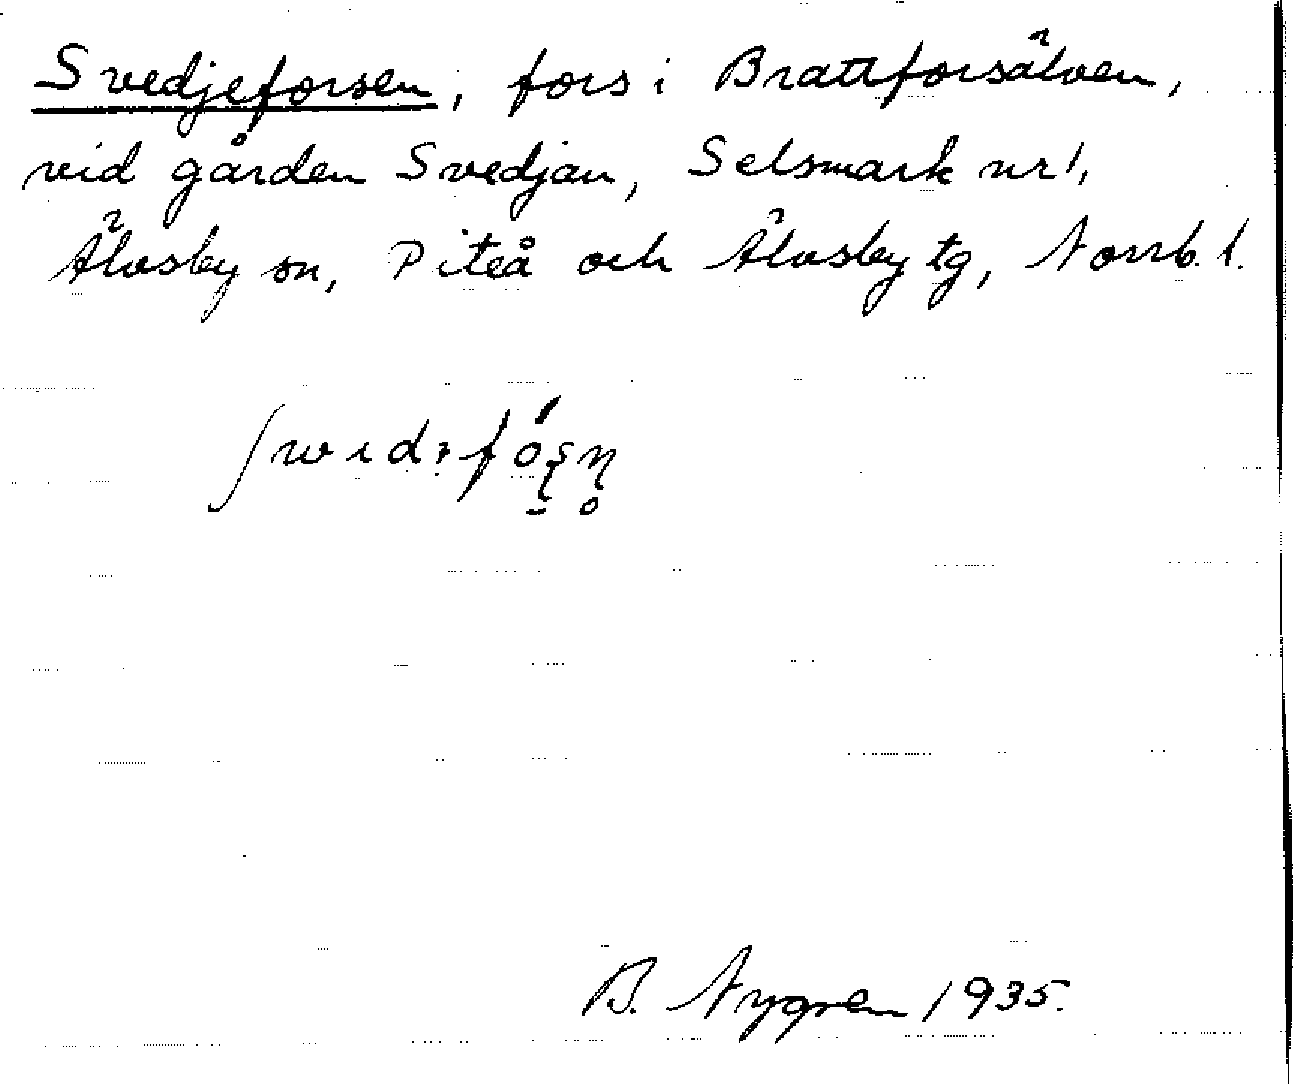 Svedjeforsen, fors i Brattforsälven,
vid gården Svedjan, Selsmark nr 1,
Älvsby sn, Piteå och Älvsby tg, Norrb. l.
B. Nygren 1935.